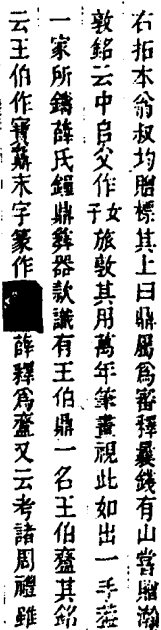 右拓本翁叔均贈標其上曰鼎屬為審釋曩錢有山嘗贈瀚
敦銘云中𠂤父作女子旅敦其用萬年筆畫視此如出一手蓋
一家所鑄薛氏鐘鼎彝器款識有王伯鼎一名王伯齍其銘
云王伯作寶末字篆作薛釋為齍又云考諸周禮雖